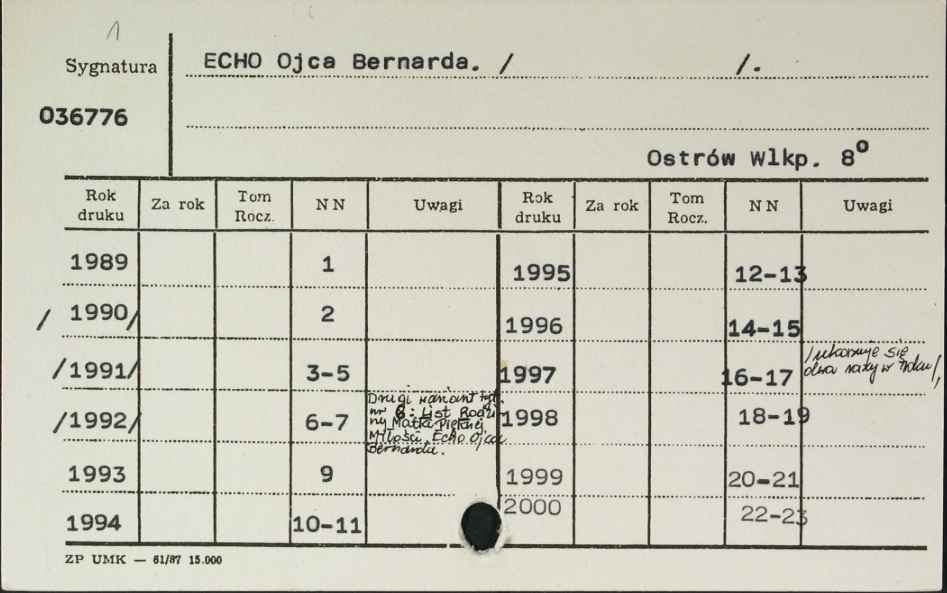 1
Sygnatura
ECHO Ojca Bernarda. / /.
036776
Ostrów Wlkp. 8o
Rok druku Za rok Tom Rocz. NN Uwagi Rok druku Za rok Tom Rocz. NN Uwagi
1989 1 1995 12-13
/ 1990/ 2 1996 14-15
/1991/ 3-5 1997 16-17 /ukazuje się
dwa razy w roku/,
/1992/ 6-7 Drugi wariant tyt. 1998 18-19
nr 6: List Rodzi-
ny Matki Pięknej
Miłości Echo Ojca
Bernarda.
1993 9 1999 20-21
1994 10-11 2000 22-23
ZP UMK — 61/87 15.000